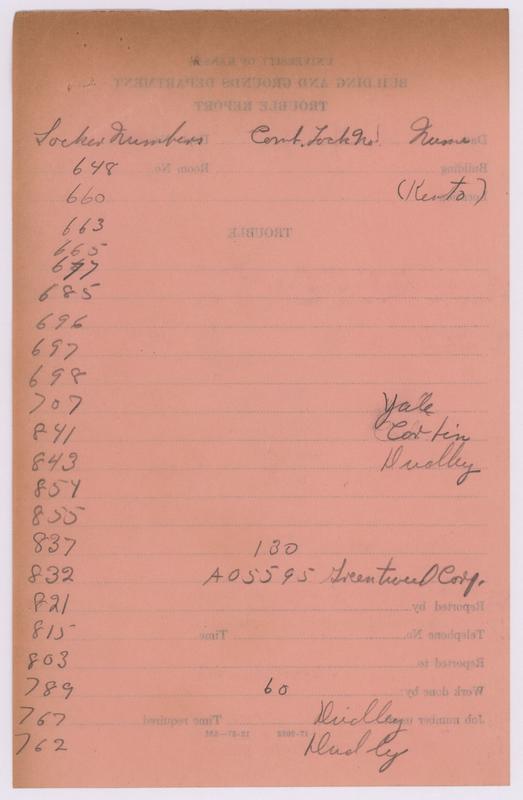 Locker Numbers Comb. Lock No. Name
648
660 (Kento)
663
665
677
685
696
697
698
707 Yale
841 Corbin
843 Dudley
854
855
837 130
832 A05595 Corp.
821
815
803
789 60
767 Dudley
762 Dudley
UNIVERSITY OF KANSAS
BUILDING AND GROUNDS DEPARTMENT
TROUBLE REPORT
Building Room No.
TROUBLE
Reported by
Telephone No. Time
Reported to
Work done by
Job number Time required